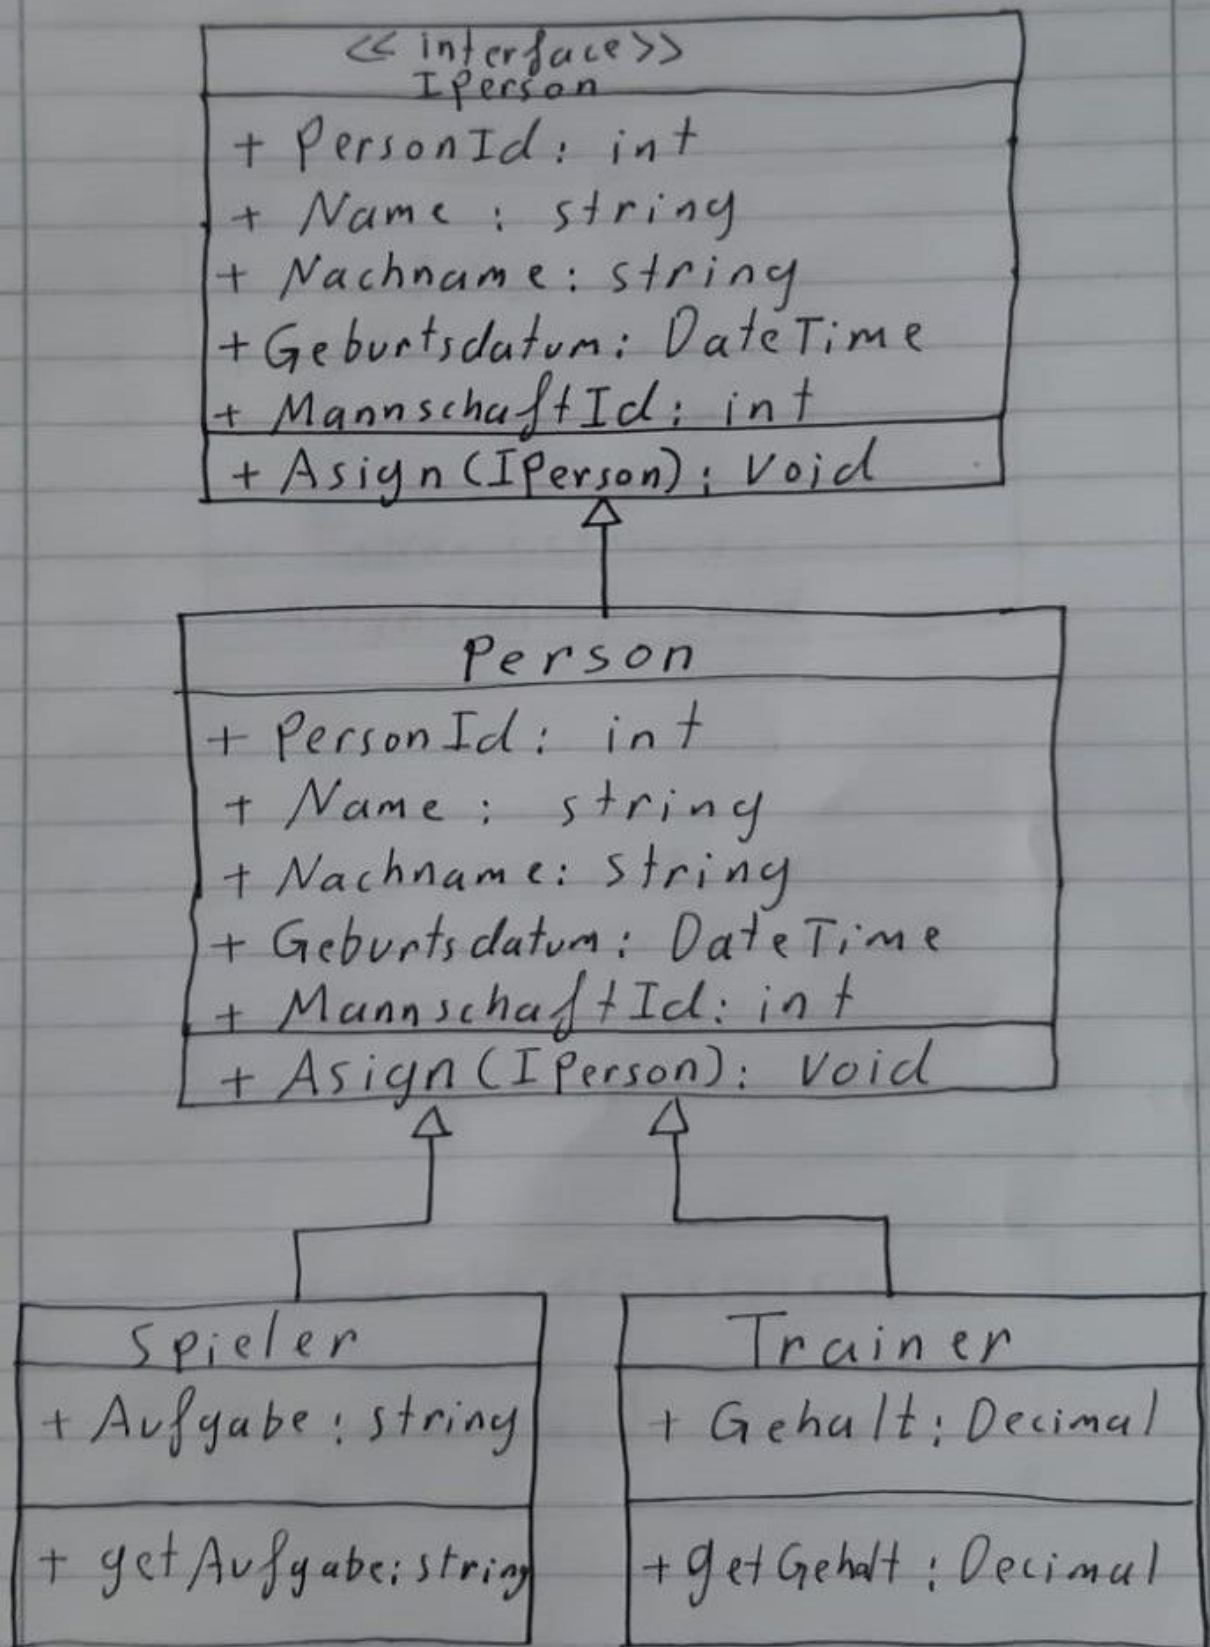 << interface >>
IPerson
+ PersonId: int
+ Name : string
+ Nachname: string
+ Geburtsdatum: DateTime
+ MannschaftId: int
+ Asign (IPerson): Void
Person
+ PersonId: int
+ Name : string
+ Nachname: string
+ Geburtsdatum: DateTime
+ MannschaftId: int
+ Asign (IPerson): Void
Spieler
+ Aufgabe: string
+ getAufgabe: string
Trainer
+ Gehalt: Decimal
+ getGehalt: Decimal